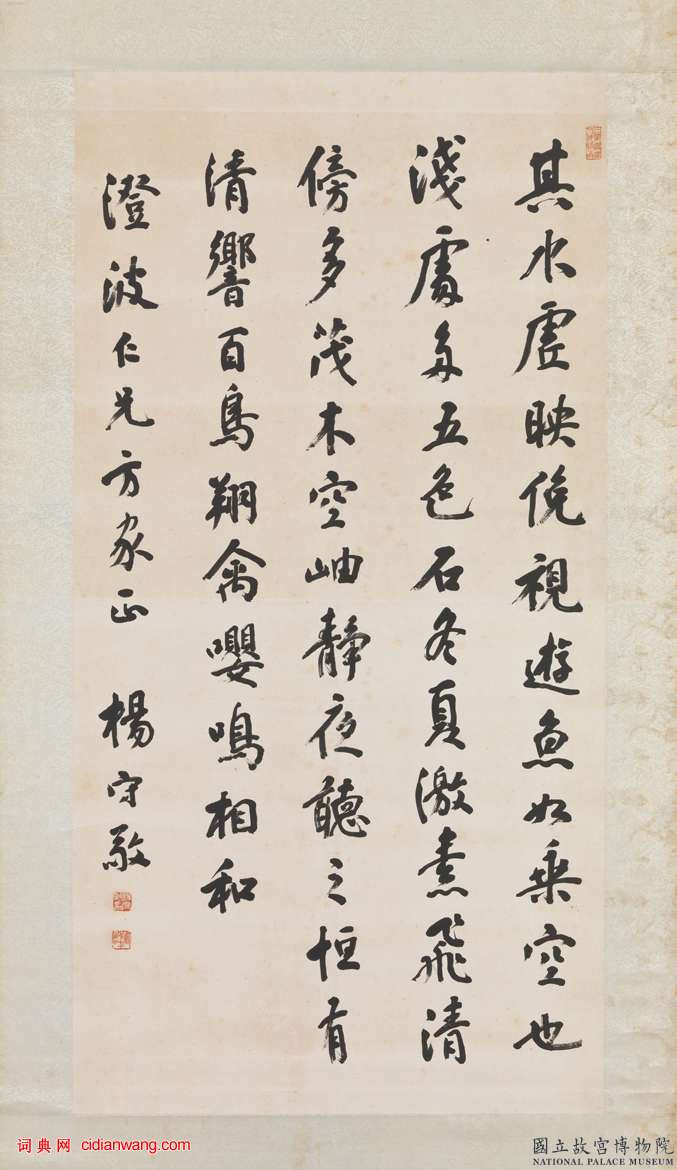 其水虛映俛視遊魚如乘空也
淺處多五色石冬夏激素飛清
傍多茂木空岫靜夜聽之恒有
清響百鳥翔禽嚶鳴相和
澄波仁兄方家正 楊守敬
词典网 cidianwang.com
國立故宮博物院
NATIONAL PALACE MUSEUM